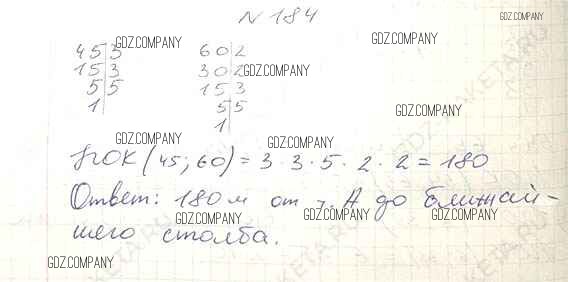 N 184
GDZ.COMPANY
45 3 60 2
GDZ.COMPANY GDZ.COMPANY
15 3 30 2 GDZ.COMPANY
5 5 15 3
1 5 5 GDZ.COMPANY
1
GDZ.COMPANY GDZ.COMPANY
НОК (45; 60) = 3 · 3 · 5 · 2 · 2 = 180
Ответ: 180 м от т. А до ближай-
GDZ.COMPANY GDZ.COMPANY GDZ.COMPANY
шего столба.
GDZ.COMPANY